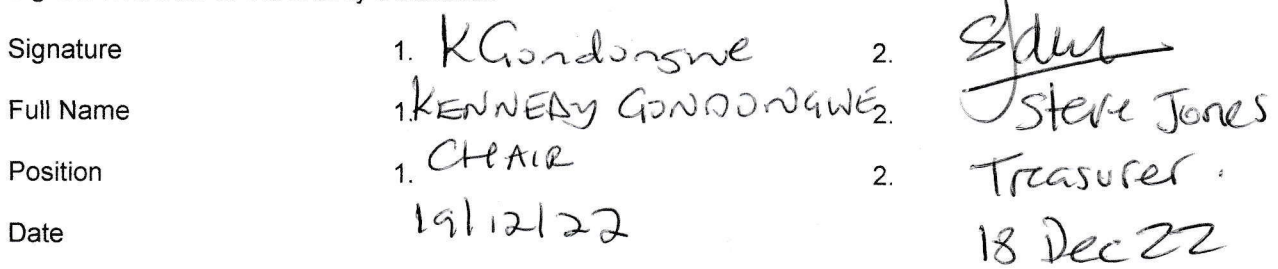 Signature 1. KGondongwe 2. SJones
Full Name 1. KENNEDY GONDONGWE 2. Steve Jones
Position 1. CHAIR 2. Treasurer.
Date 19/12/22 18 Dec 22